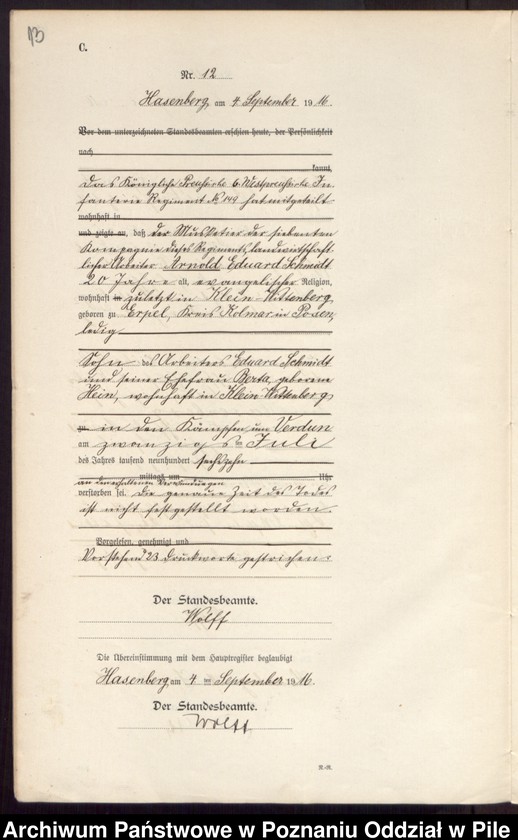 13
C.
Nr. 12
Hasenberg, am 4 September 1916
Vor dem unterzeichneten Standesbeamten erschien heute, der Persönlichkeit
nach
kannt,
Das Königlich Preußische 6. Westpreußische In-
fanterie Regiment No 149 hat mitgeteilt
wohnhaft in
und zeigte an, daß der Musketier der siebenten
Kompagnie dieses Regiments, landwirtschaft-
licher Arbeiter Arnold Eduard Schmidt
20 Jahre alt, evangelischer Religion,
wohnhaft in zuletzt in Klein-Wittenberg,
geboren zu Erpel, Kreis Kolmar in Posen,
ledig
Sohn des Arbeiters Eduard Schmidt
und seiner Ehefrau Berta, geborene
Hein, wohnhaft in Klein Wittenberg
zu in den Kämpfen um Verdun
am zwanzigsten Juli
des Jahres tausend neunhundert sechszehn
mittags um Uhr
an den erhaltenen Verwundungen
verstorben sei. Die genaue Zeit des Todes
ist nicht festgestellt worden.
Vorgelesen, genehmigt und
Vorstehend 23 Druckworte gestrichen.
Der Standesbeamte.
Wolff
Die Übereinstimmung mit dem Hauptregister beglaubigt
Hasenberg, am 4 ten September 1916.
Der Standesbeamte.
Wolff
K.-R.
Archiwum Państwowe w Poznaniu Oddział w Pile